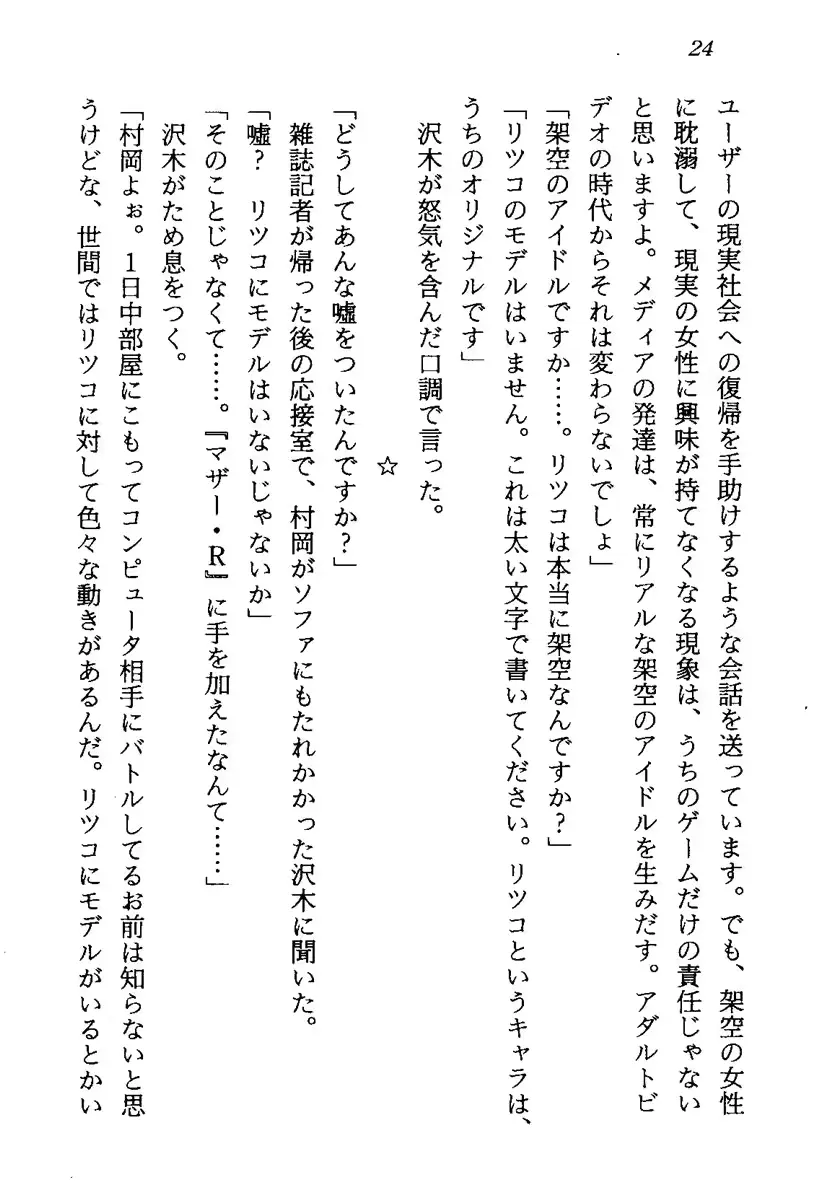 24
ユーザーの現実社会への復帰を手助けするような会話を送っています。でも、架空の女性
に耽溺して、現実の女性に興味が持てなくなる現象は、うちのゲームだけの責任じゃない
と思いますよ。メディアの発達は、常にリアルな架空のアイドルを生みだす。アダルトビ
デオの時代からそれは変わらないでしょ」
「架空のアイドルですか……。リツコは本当に架空なんですか?」
「リツコのモデルはいません。これは太い文字で書いてください。リツコというキャラは、
うちのオリジナルです」
沢木が怒気を含んだ口調で言った。
☆
「どうしてあんな嘘をついたんですか?」
雑誌記者が帰った後の応接室で、村岡がソファにもたれかかった沢木に聞いた。
「嘘? リツコにモデルはいないじゃないか」
「そのことじゃなくて……。『マザー・R』に手を加えたなんて……」
沢木がため息をつく。
「村岡よぉ。1日中部屋にこもってコンピュータ相手にバトルしてるお前は知らないと思
うけどな、世間ではリツコに対して色々な動きがあるんだ。リツコにモデルがいるとかい